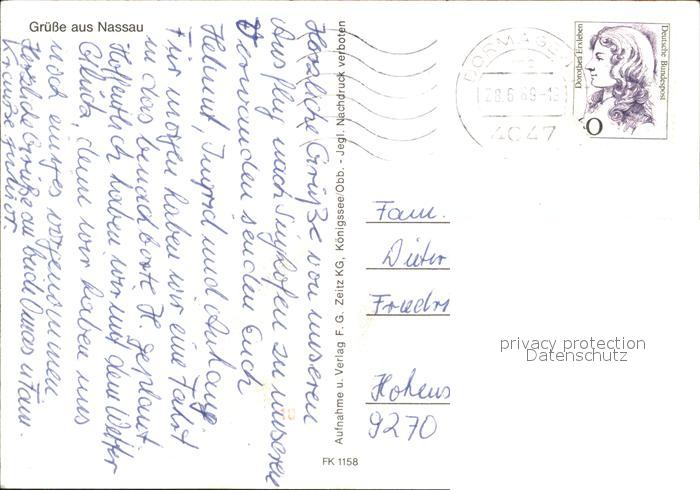 Grüße aus Nassau
Herzliche Grüße von unserem
Ausflug nach Singhofen zu unseren
Verwanden senden Euch
Helmut, Ingrid und Anhang.
Für morgen haben wir eine Fahrt
in das benachbarte H. geplant.
Hoffentlich haben wir mit dem Wetter
Glück, denn wir haben uns
noch einiges vorgenommen
Herzliche Grüße an beide Omas u. Fam.
Krause
Aufnahme u. Verlag F. G. Zeitz KG, Königssee/Obb. - Jegl. Nachdruck verboten
FK 1158
DORMAGEN
28.6.89-18
4047
Dorothea Erxleben
Deutsche Bundespost
Fam.
Dieter
Friedr
Hohens
9270
privacy protection
Datenschutz